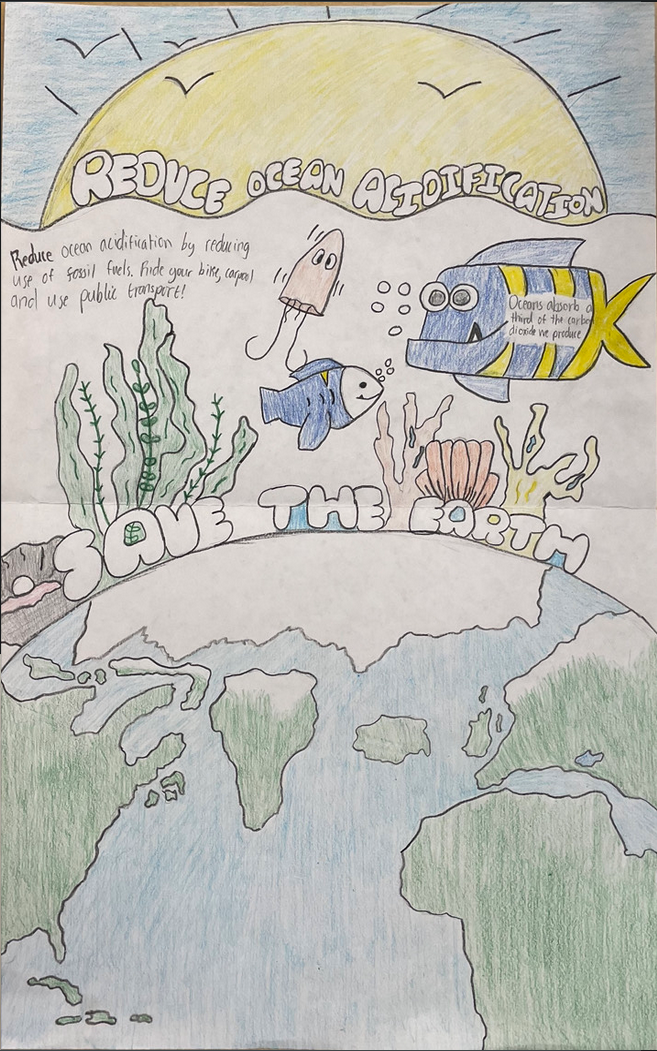 REDUCE OCEAN ACIDIFICATION
Reduce ocean acidification by reducing
use of fossil fuels. Ride your bike, carpool
and use public transport!
Oceans absorb a
third of the carbon
dioxide we produce
SAVE THE EARTH